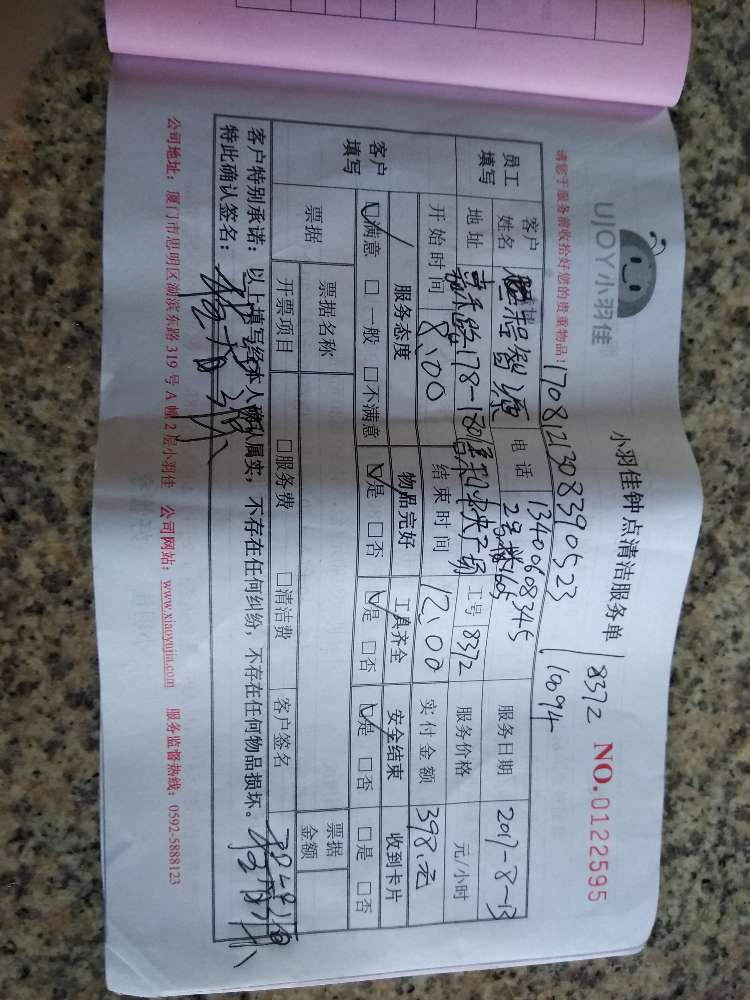 UJOY小羽佳
小羽佳钟点清洁服务单
8372
10094
NO.0122595
请您于服务前收拾好您的贵重物品!
1708121308390523
员工填写
客户姓名
电话
13400608345
服务日期
2017-8-13
地址
178-180
2号楼1605
工号
8372
服务价格
元/小时
开始时间
8:00
结束时间
12:00
实付金额
398.元
客户填写
服务态度
物品完好
工具齐全
安全结束
收到卡片
☑满意 □一般 □不满意
☑是 □否
☑是 □否
☑是 □否
□是 □否
票据
票据名称
票据金额
开票项目
□服务费
□清洁费
客户签名
客户特别承诺:以上填写经本人确认属实,不存在任何纠纷,不存在任何物品损坏。
特此确认签名:
公司地址:厦门市思明区湖滨东路 319 号 A 幢 2 层小羽佳 公司网站:www.xiaoyujia.com 服务监督热线:0592-5888123